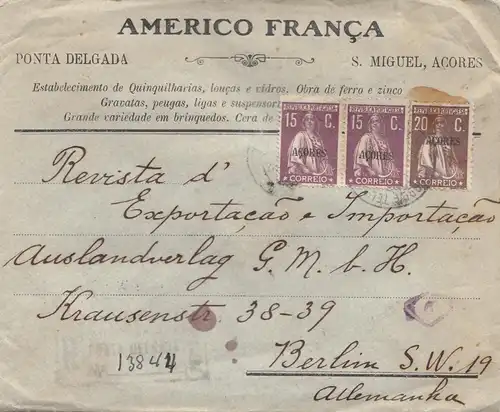 AMERICO FRANÇA
PONTA DELGADA S. MIGUEL, AÇORES
Estabelecimento de Quinquilharias, louças e vidros. Obra de ferro e zinco
Gravatas, peugas, ligas e suspensor
Grande variedade em brinquedos. Cera de
REPUBLICA PORTUGUESA REPUBLICA PORTUGUESA REPUBLICA PORTUGUESA
15 C. 15 C. 20 C.
AÇORES AÇORES AÇORES
CORREIO CORREIO CORREIO
Revista d'
Exportação e Importação
Auslandverlag G. M. b. H.
Krausenstr 38-39
13844
Berlim S.W. 19
Allemanha